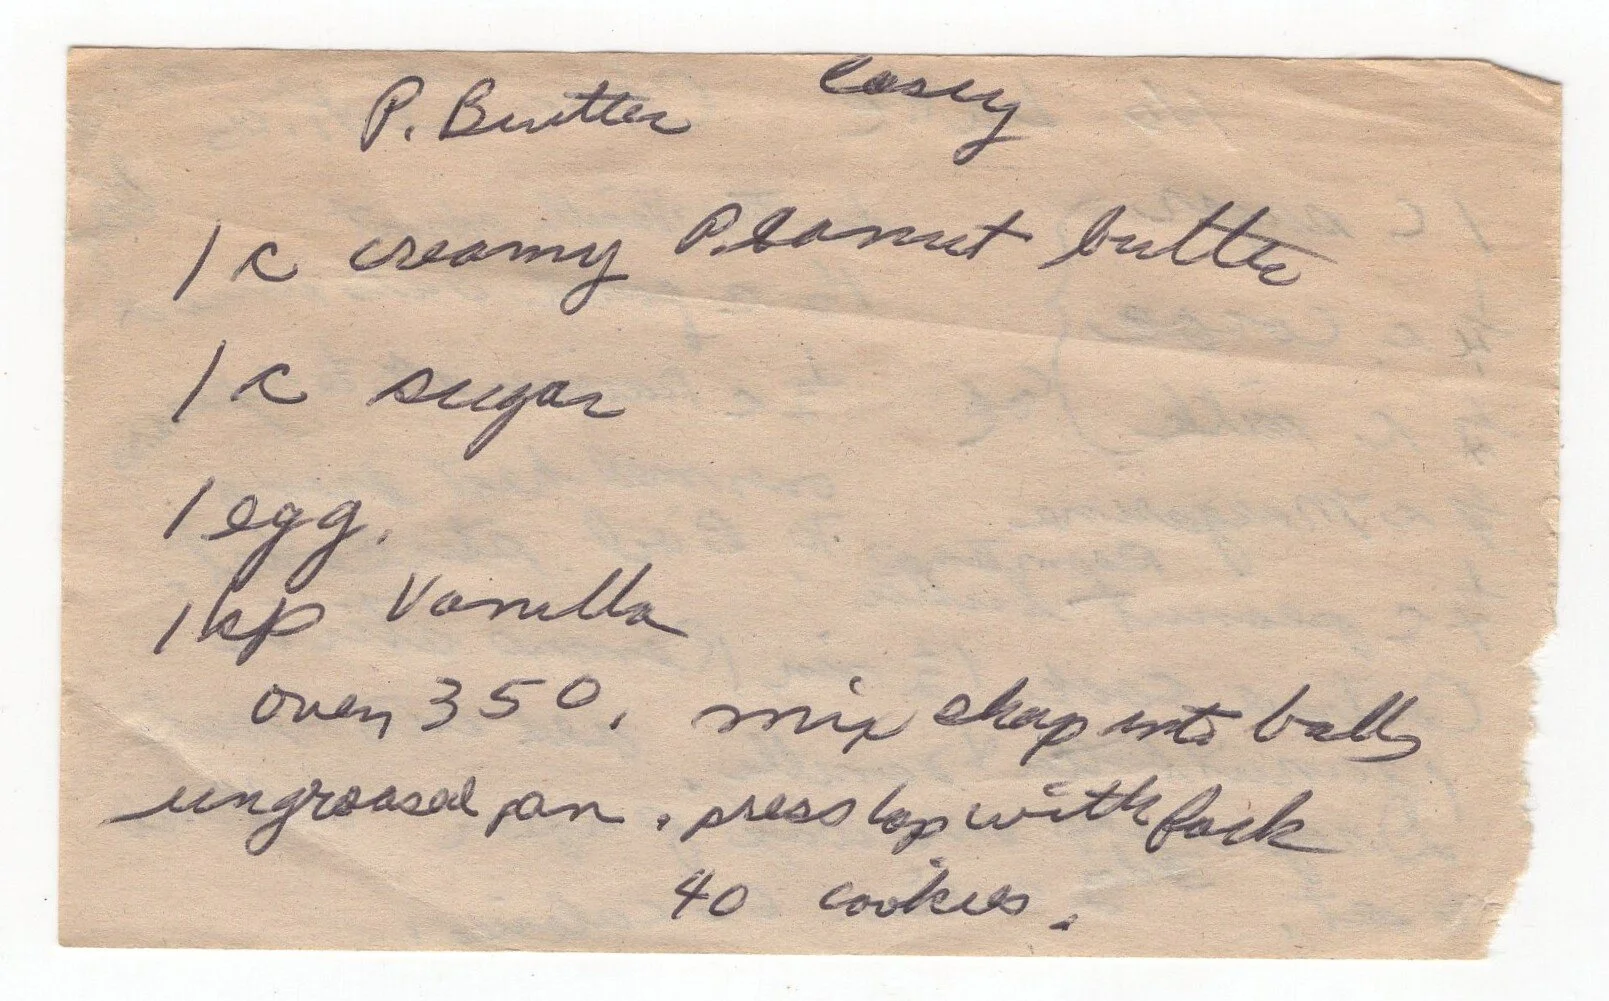 P. Butter easy
1 c creamy Peanut butter
1 c sugar
1 egg.
1 tsp Vanilla
oven 350. mix shap into balls
ungreased pan. press top with fork
40 cookies.